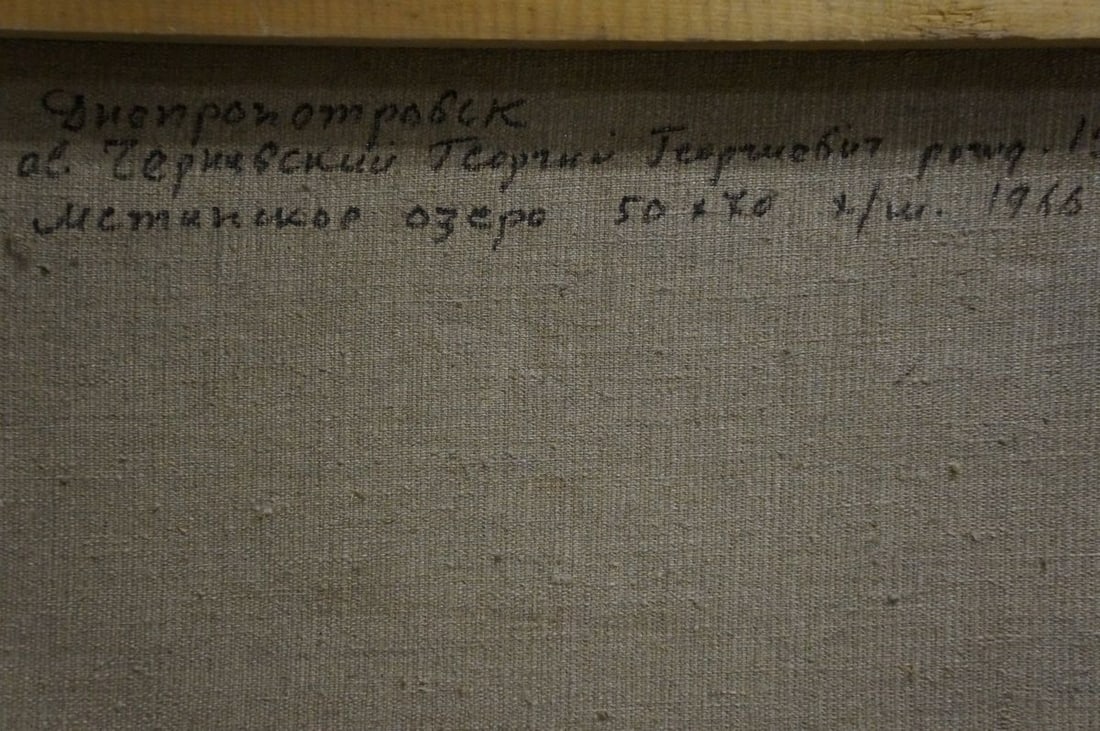 Днепропетровск
ав. Чернявский Георгий Георгиевич рожд.
озеро 50 х 70 х/м. 1966